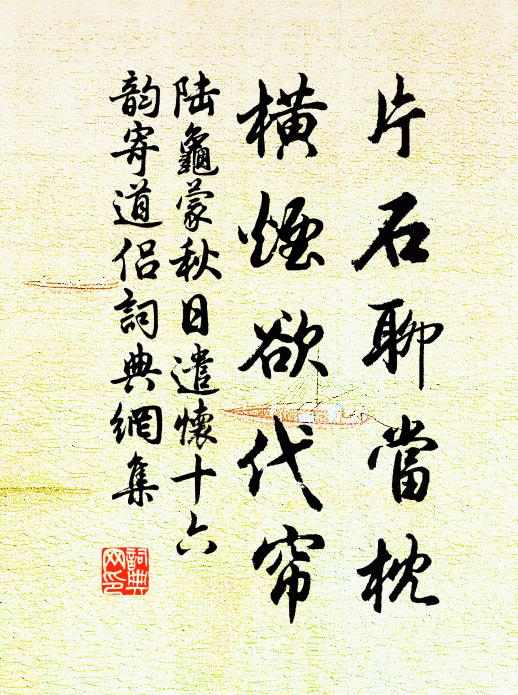 片石聊當枕
橫煙欲代帘
陆龜蒙秋日遣懷十六
韵寄道侣詞典網集
詞典网印